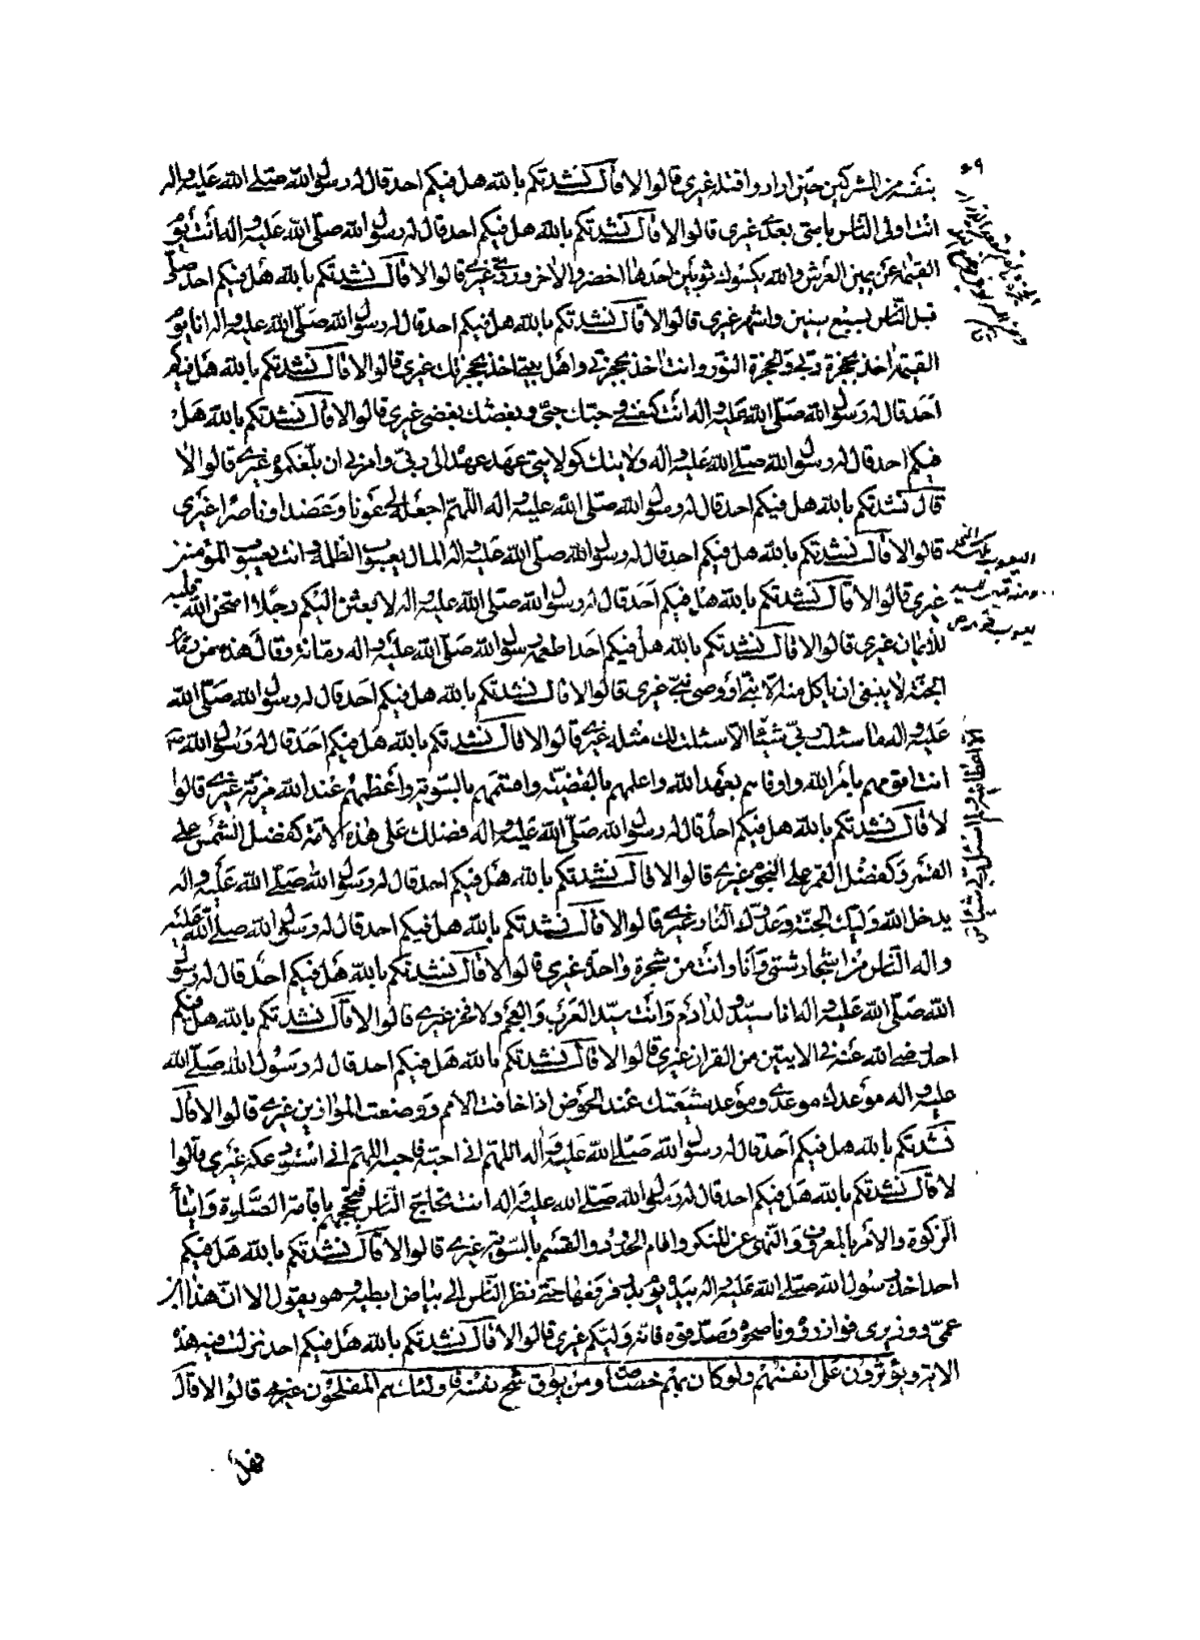 بنفسه من المشركين حين ارادوا قتله غيرى قالوا لا قال نشدتكم بالله هل فيكم احد قال له رسول الله صلى الله عليه واله
انت اولى الناس بامتى بعدى غيرى قالوا لا قال نشدتكم بالله هل فيكم احد قال له رسول الله صلى الله عليه واله انت يوم
القيمة عن يمين العرش والله يكسوك ثوبين احدهما اخضر والاخر وردى غيرى قالوا لا قال نشدتكم بالله هل فيكم احد صلى
قبل الناس بسبع سنين واشهر غيرى قالوا لا قال نشدتكم بالله هل فيكم احد قال له رسول الله صلى الله عليه واله انا يوم
القيمة اخذ بحجزة ربى والحجزة النور وانت اخذ بحجزتى واهل بيتى اخذ بحجزتك غيرى قالوا لا قال نشدتكم بالله هل فيكم
احد قال له رسول الله صلى الله عليه واله انت كنفسى وحبك حبى وبغضك بغضى غيرى قالوا لا قال نشدتكم بالله هل
فيكم احد قال له رسول الله صلى الله عليه واله ولايتك كولايتى عهد عهده الى ربى وامرنى ان ابلغكموه غيرى قالوا لا
قال نشدتكم بالله هل فيكم احد قال له رسول الله صلى الله عليه واله اللهم اجعله لى عونا وعضدا وناصرا غيرى
قالوا لا قال نشدتكم بالله هل فيكم احد قال له رسول الله صلى الله عليه واله المال يعسوب الظلمة وانت يعسوب المؤمنين
غيرى قالوا لا قال نشدتكم بالله هل فيكم احد قال له رسول الله صلى الله عليه واله لابعثن اليكم رجلا امتحن الله قلبه
للايمان غيرى قالوا لا قال نشدتكم بالله هل فيكم احد اطعمه رسول الله صلى الله عليه واله رمانة وقال هذه من رمان
الجنة لا ينبغى ان ياكل منه الا نبى او وصى نبى غيرى قالوا لا قال نشدتكم بالله هل فيكم احد قال له رسول الله صلى الله
عليه واله ما سئلت ربى شيئا الا سئلت لك مثله غيرى قالوا لا قال نشدتكم بالله هل فيكم احد قال له رسول الله ص
انت اقومهم بامر الله واوفاهم بعهد الله واعلمهم بالقضية واقسمهم بالسوية واعظمهم عند الله مزية غيرى قالوا
لا قال نشدتكم بالله هل فيكم احد قال له رسول الله صلى الله عليه واله فضلك على هذه الامة كفضل الشمس على
القمر وكفضل القمر على النجوم غيرى قالوا لا قال نشدتكم بالله هل فيكم احد قال له رسول الله صلى الله عليه واله
يدخل الله وليك الجنة وعدوك النار غيرى قالوا لا قال نشدتكم بالله هل فيكم احد قال له رسول الله صلى الله عليه
واله الناس من اشجار شتى وانا وانت من شجرة واحدة غيرى قالوا لا قال نشدتكم بالله هل فيكم احد قال له رسول
الله صلى الله عليه واله انا سيد ولد ادم وانت سيد العرب والعجم ولا فخر غيرى قالوا لا قال نشدتكم بالله هل فيكم
احد رضى الله عنه فى الايتين من القران غيرى قالوا لا قال نشدتكم بالله هل فيكم احد قال له رسول الله صلى الله
عليه واله موعدك موعدى وموعد شيعتك عند الحوض اذا خافت الامم ووضعت الموازين غيرى قالوا لا قال
نشدتكم بالله هل فيكم احد قال له رسول الله صلى الله عليه واله اللهم انى احبه فاحبه اللهم انى استودعكه غيرى قالوا
لا قال نشدتكم بالله هل فيكم احد قال له رسول الله صلى الله عليه واله انت تحاج الناس فتحجهم باقامة الصلوة وايتاء
الزكوة والامر بالمعروف والنهى عن المنكر واقام الحدود والقسم بالسوية غيرى قالوا لا قال نشدتكم بالله هل فيكم
احد اخذ رسول الله صلى الله عليه واله بيده يوم بدر فرفعها حتى نظر الناس الى بياض ابطيه وهو يقول الا ان هذا ابن
عمى ووزيرى فوازروه وناصحوه وصدقوه فانه وليكم غيرى قالوا لا قال نشدتكم بالله هل فيكم احد نزلت فيه هذه
الاية ويؤثرون على انفسهم ولو كان بهم خصاصة ومن يوق شح نفسه فاولئك هم المفلحون غيرى قالوا لا قال
فهل